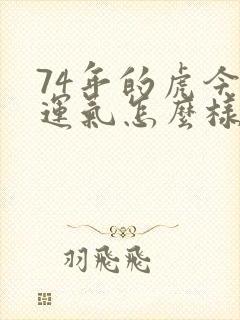 74年的虎今
運氣怎麼樣
羽飛飛